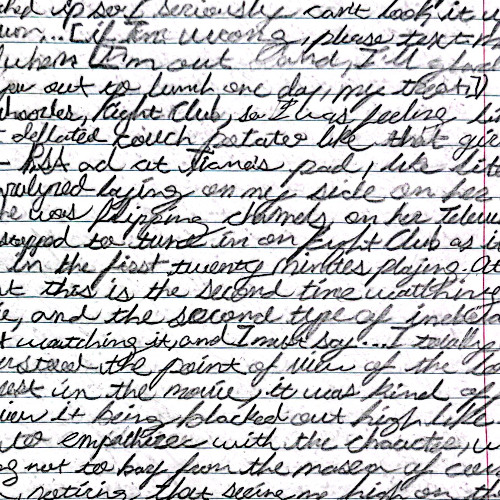 so I seriously can't look it u
...[if I'm wrong, please text m
when I'm out and, I'll glad
you out to lunch one day, my treat,])
whooter, Fight Club, so I was feeling li
deflated couch potater like that gir
- PSA ad at Diana's pad, like lite
paralyzed laying on my side on her
he was flipping channels, on her Telev
stopped to tune in on Fight Club as i
in the first twenty minutes playing. at
t this is the second time watching
ie, and the second type of
t watching it, and I must say...I totally
erstood the point of view of the
in the movie, it was kind of
view it being blacked out high like
to empathize with the character, w
not to bag from the
noticing that seeing me high on th